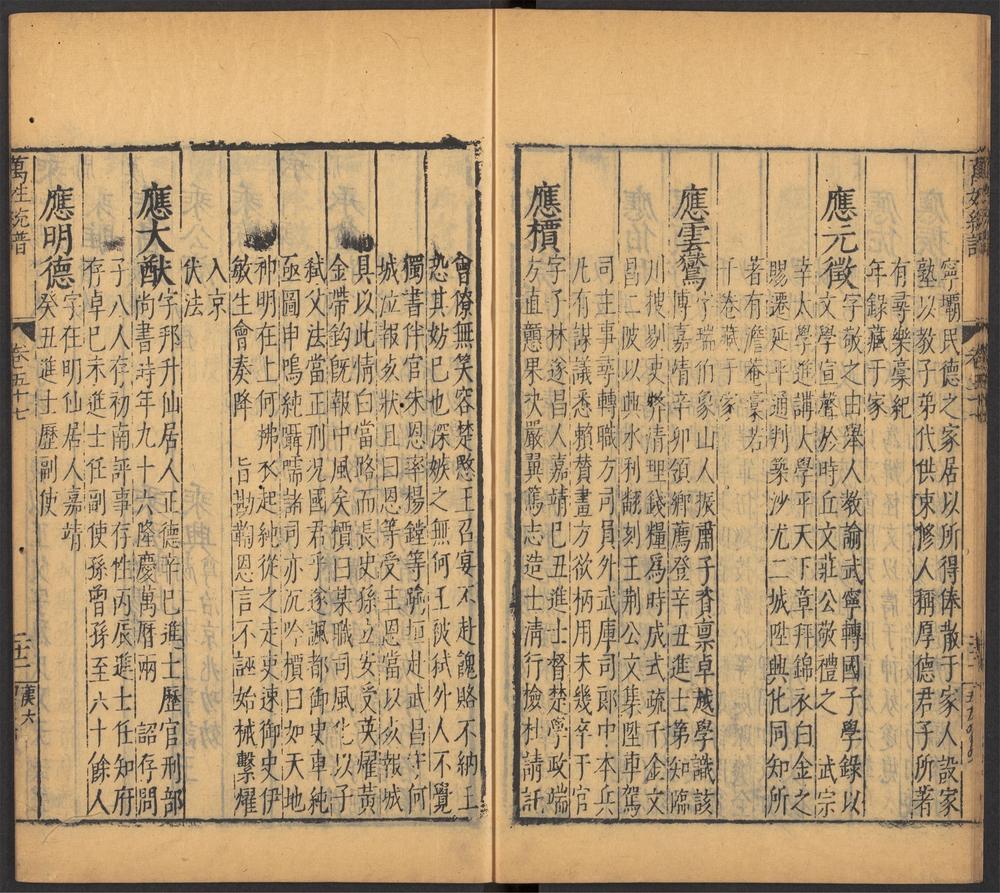 寧壩民德之家居以所得俸散于家人設家
塾以教子弟代供束修人稱厚德君子所著
有尋樂稾紀
年錄藏于家
應元徵
字敬之由舉人教諭武寧轉國子學錄以
文學宣聲於時丘文莊公敬禮之　武宗
幸太學進講大學平天下章拜錦衣白金之
賜遷延平通判築沙尤二城陞興化同知所
著有詹菴稾若
干卷藏于家
應雲鸑
字瑞伯象山人振肅子資禀卓越學識該
博嘉靖辛卯領鄉薦登辛丑進士第知臨
川彼剔吏弊清理錢糧爲時成式疏千金文
昌二陂以興水利翻刻王荆公文集陞車駕
司主事尋轉職方司員外武庫司郎中本兵
凡有謀議悉賴賛畫方欲柄用未幾卒于官
應檟
字子林遂昌人嘉靖己丑進士督楚學政端
方直諒果决嚴翼篤志造士淸行檢杜請託
會僚無笑容楚愍王召宴不赴餽賂不納王
恐其妨已也深嫉之無何王被弑外人不覺
獨書伴官朱恩率楊鏜等䟽垣赴武昌守何
城竝報亥狀且曰恩等受王恩當以亥報城
具以此情白當路而長史孫立安受英燿黃
金帶鈎旣報中風矣檟曰某職司風化以子
弑父法當正刑况國君乎遂諷都御史車純
亟圖申嗚純囁嚅諸司亦沉吟檟曰如天地
神明在上何拂衣起純從之走吏速御史伊
敏生會奏降　旨勘覈恩言不誣始械繫燿
入京
伏法
應大猷
字邦升仙居人正德辛巳進士歷官刑部
尚書時年九十六隆慶萬曆兩　詔存問
子八人存初南評事存性丙辰進士任知府
存卓己未進士任副使孫曾孫至六十餘人
應明德
字在明仙居人嘉靖
癸丑進士歷副使
萬姓統譜
卷五十七